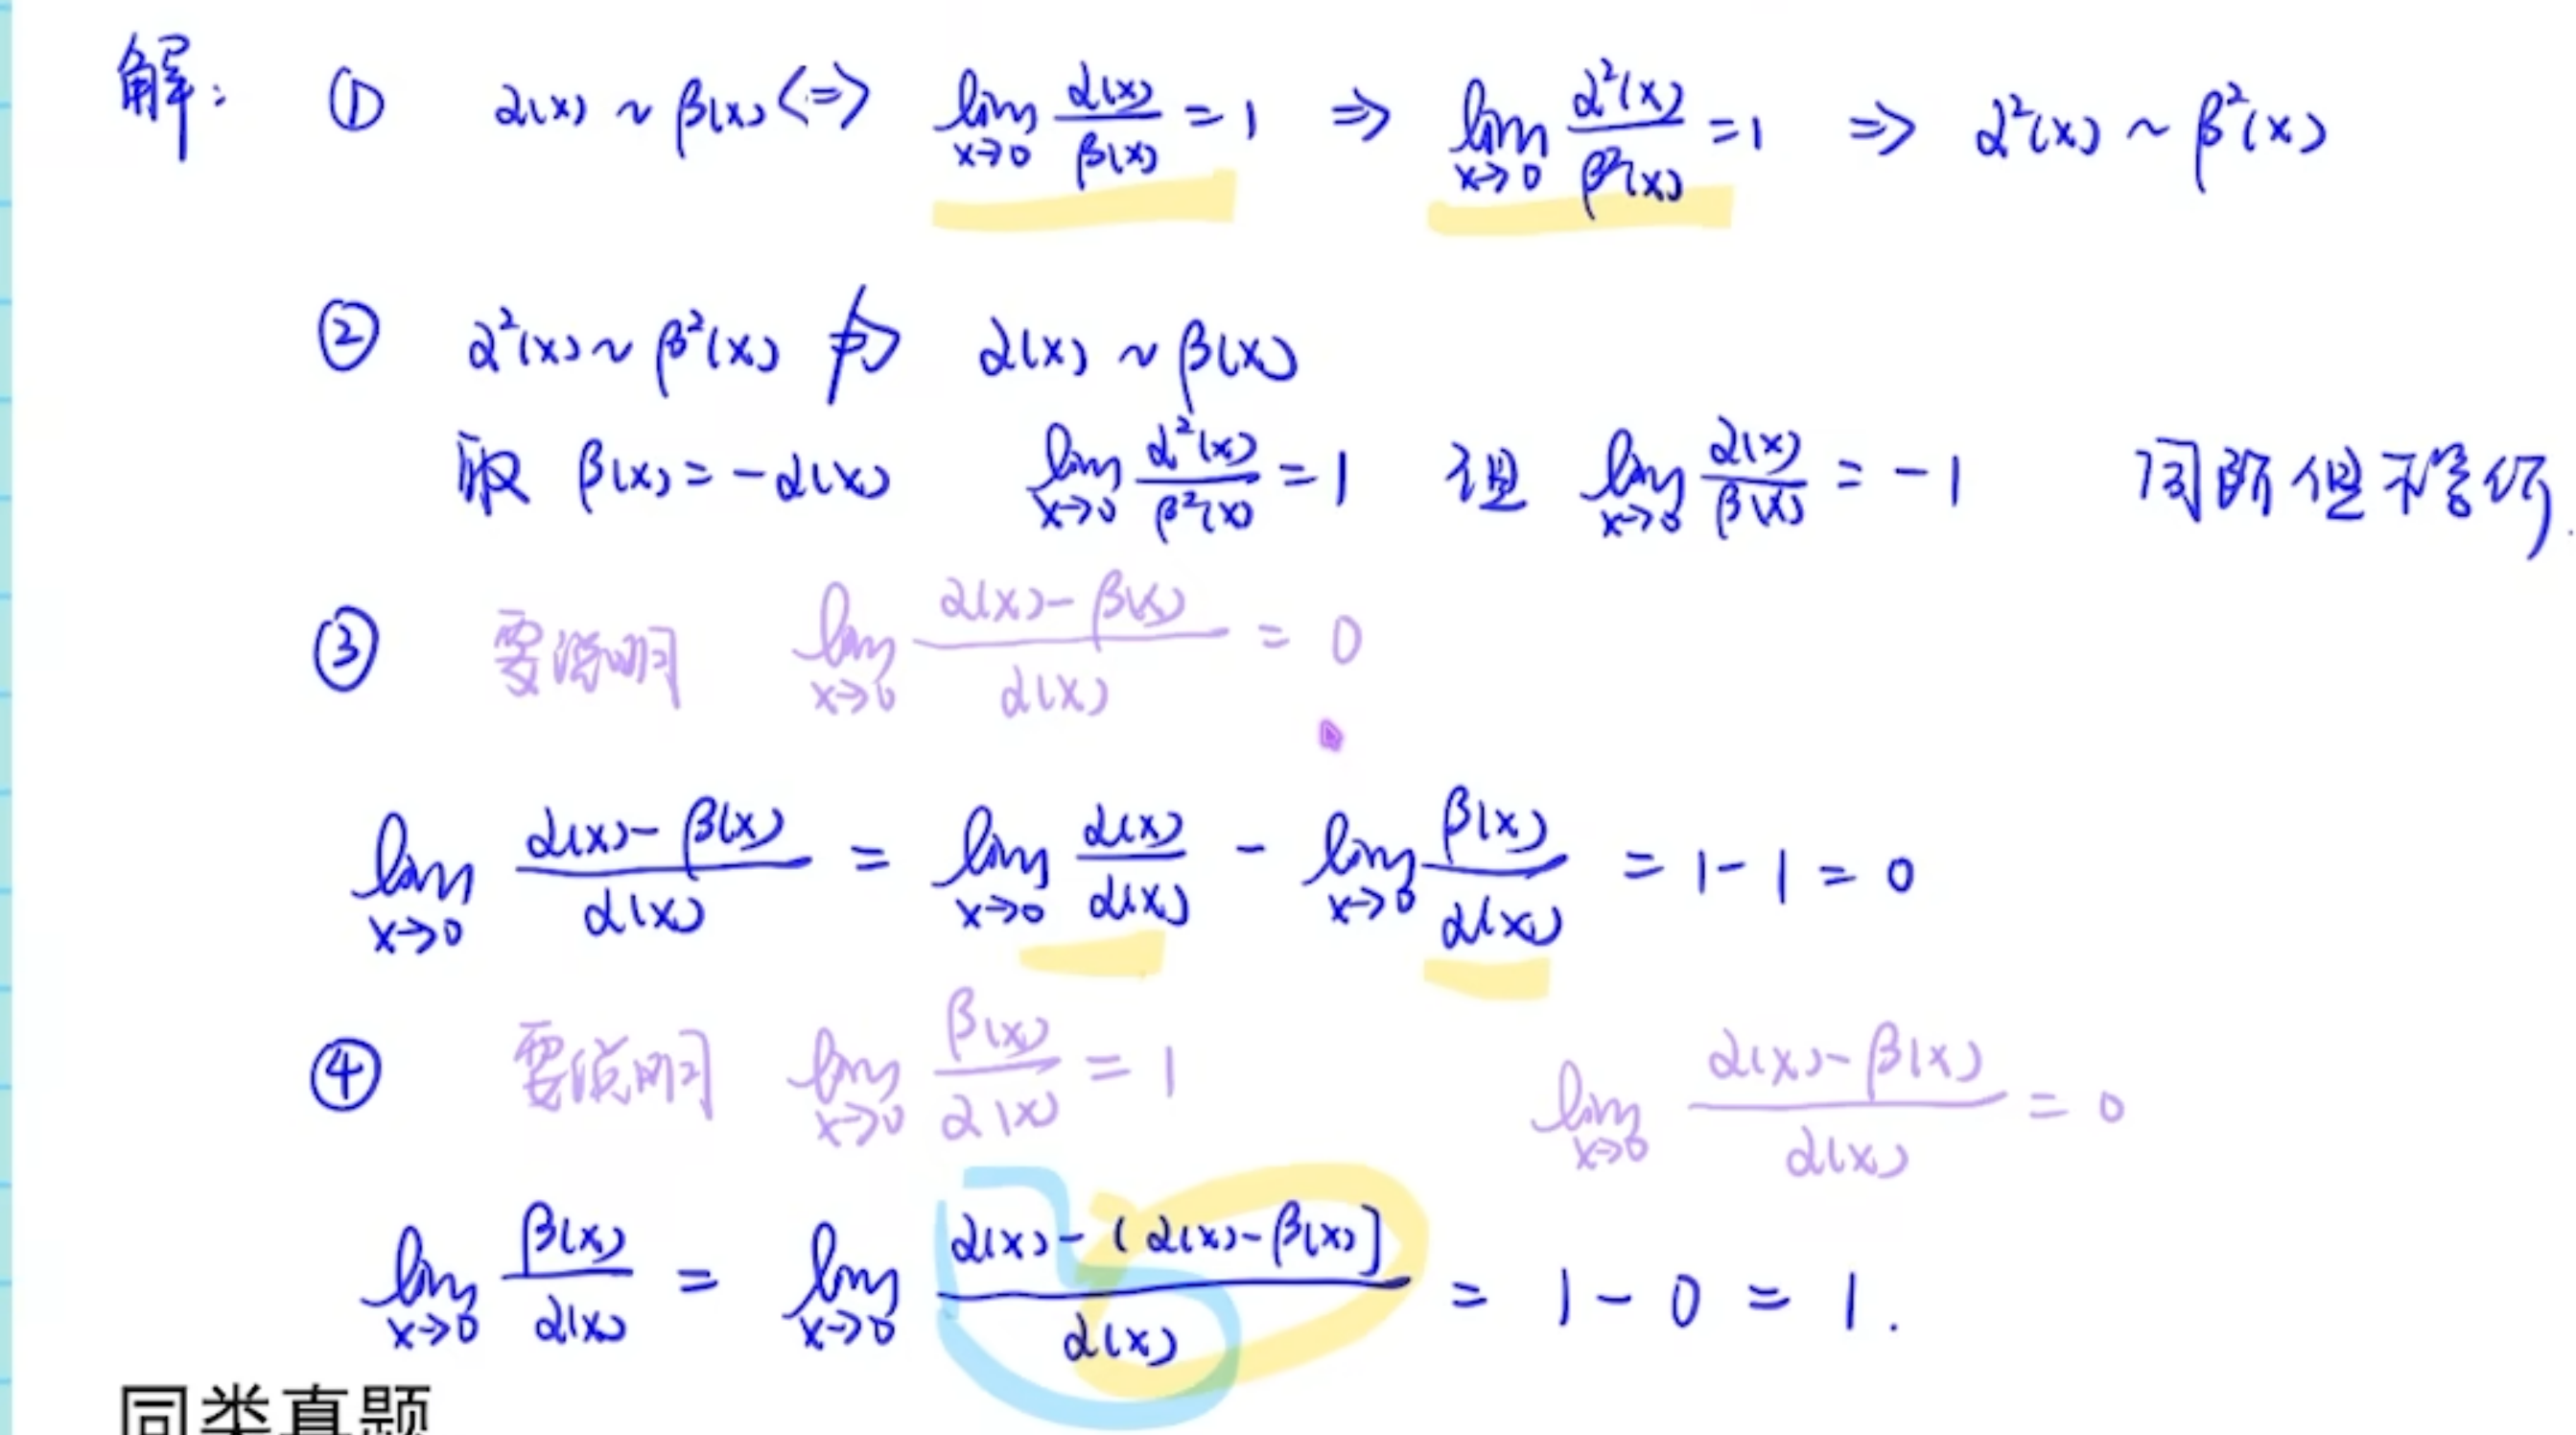 解: ① α(x) ~ β(x) <=> lim x→0 α(x)/β(x) = 1 => lim x→0 α²(x)/β²(x) = 1 => α²(x) ~ β²(x)
② α²(x) ~ β²(x) ⇏ α(x) ~ β(x)
取 β(x) = -α(x) lim x→0 α²(x)/β²(x) = 1 但 lim x→0 α(x)/β(x) = -1 同阶但不等价.
③ 要说明 lim x→0 (α(x)-β(x))/α(x) = 0
lim x→0 (α(x)-β(x))/α(x) = lim x→0 α(x)/α(x) - lim x→0 β(x)/α(x) = 1-1 = 0
④ 要说明 lim x→0 β(x)/α(x) = 1 lim x→0 (α(x)-β(x))/α(x) = 0
lim x→0 β(x)/α(x) = lim x→0 (α(x)-(α(x)-β(x)])/α(x) = 1-0 = 1.
同类真题